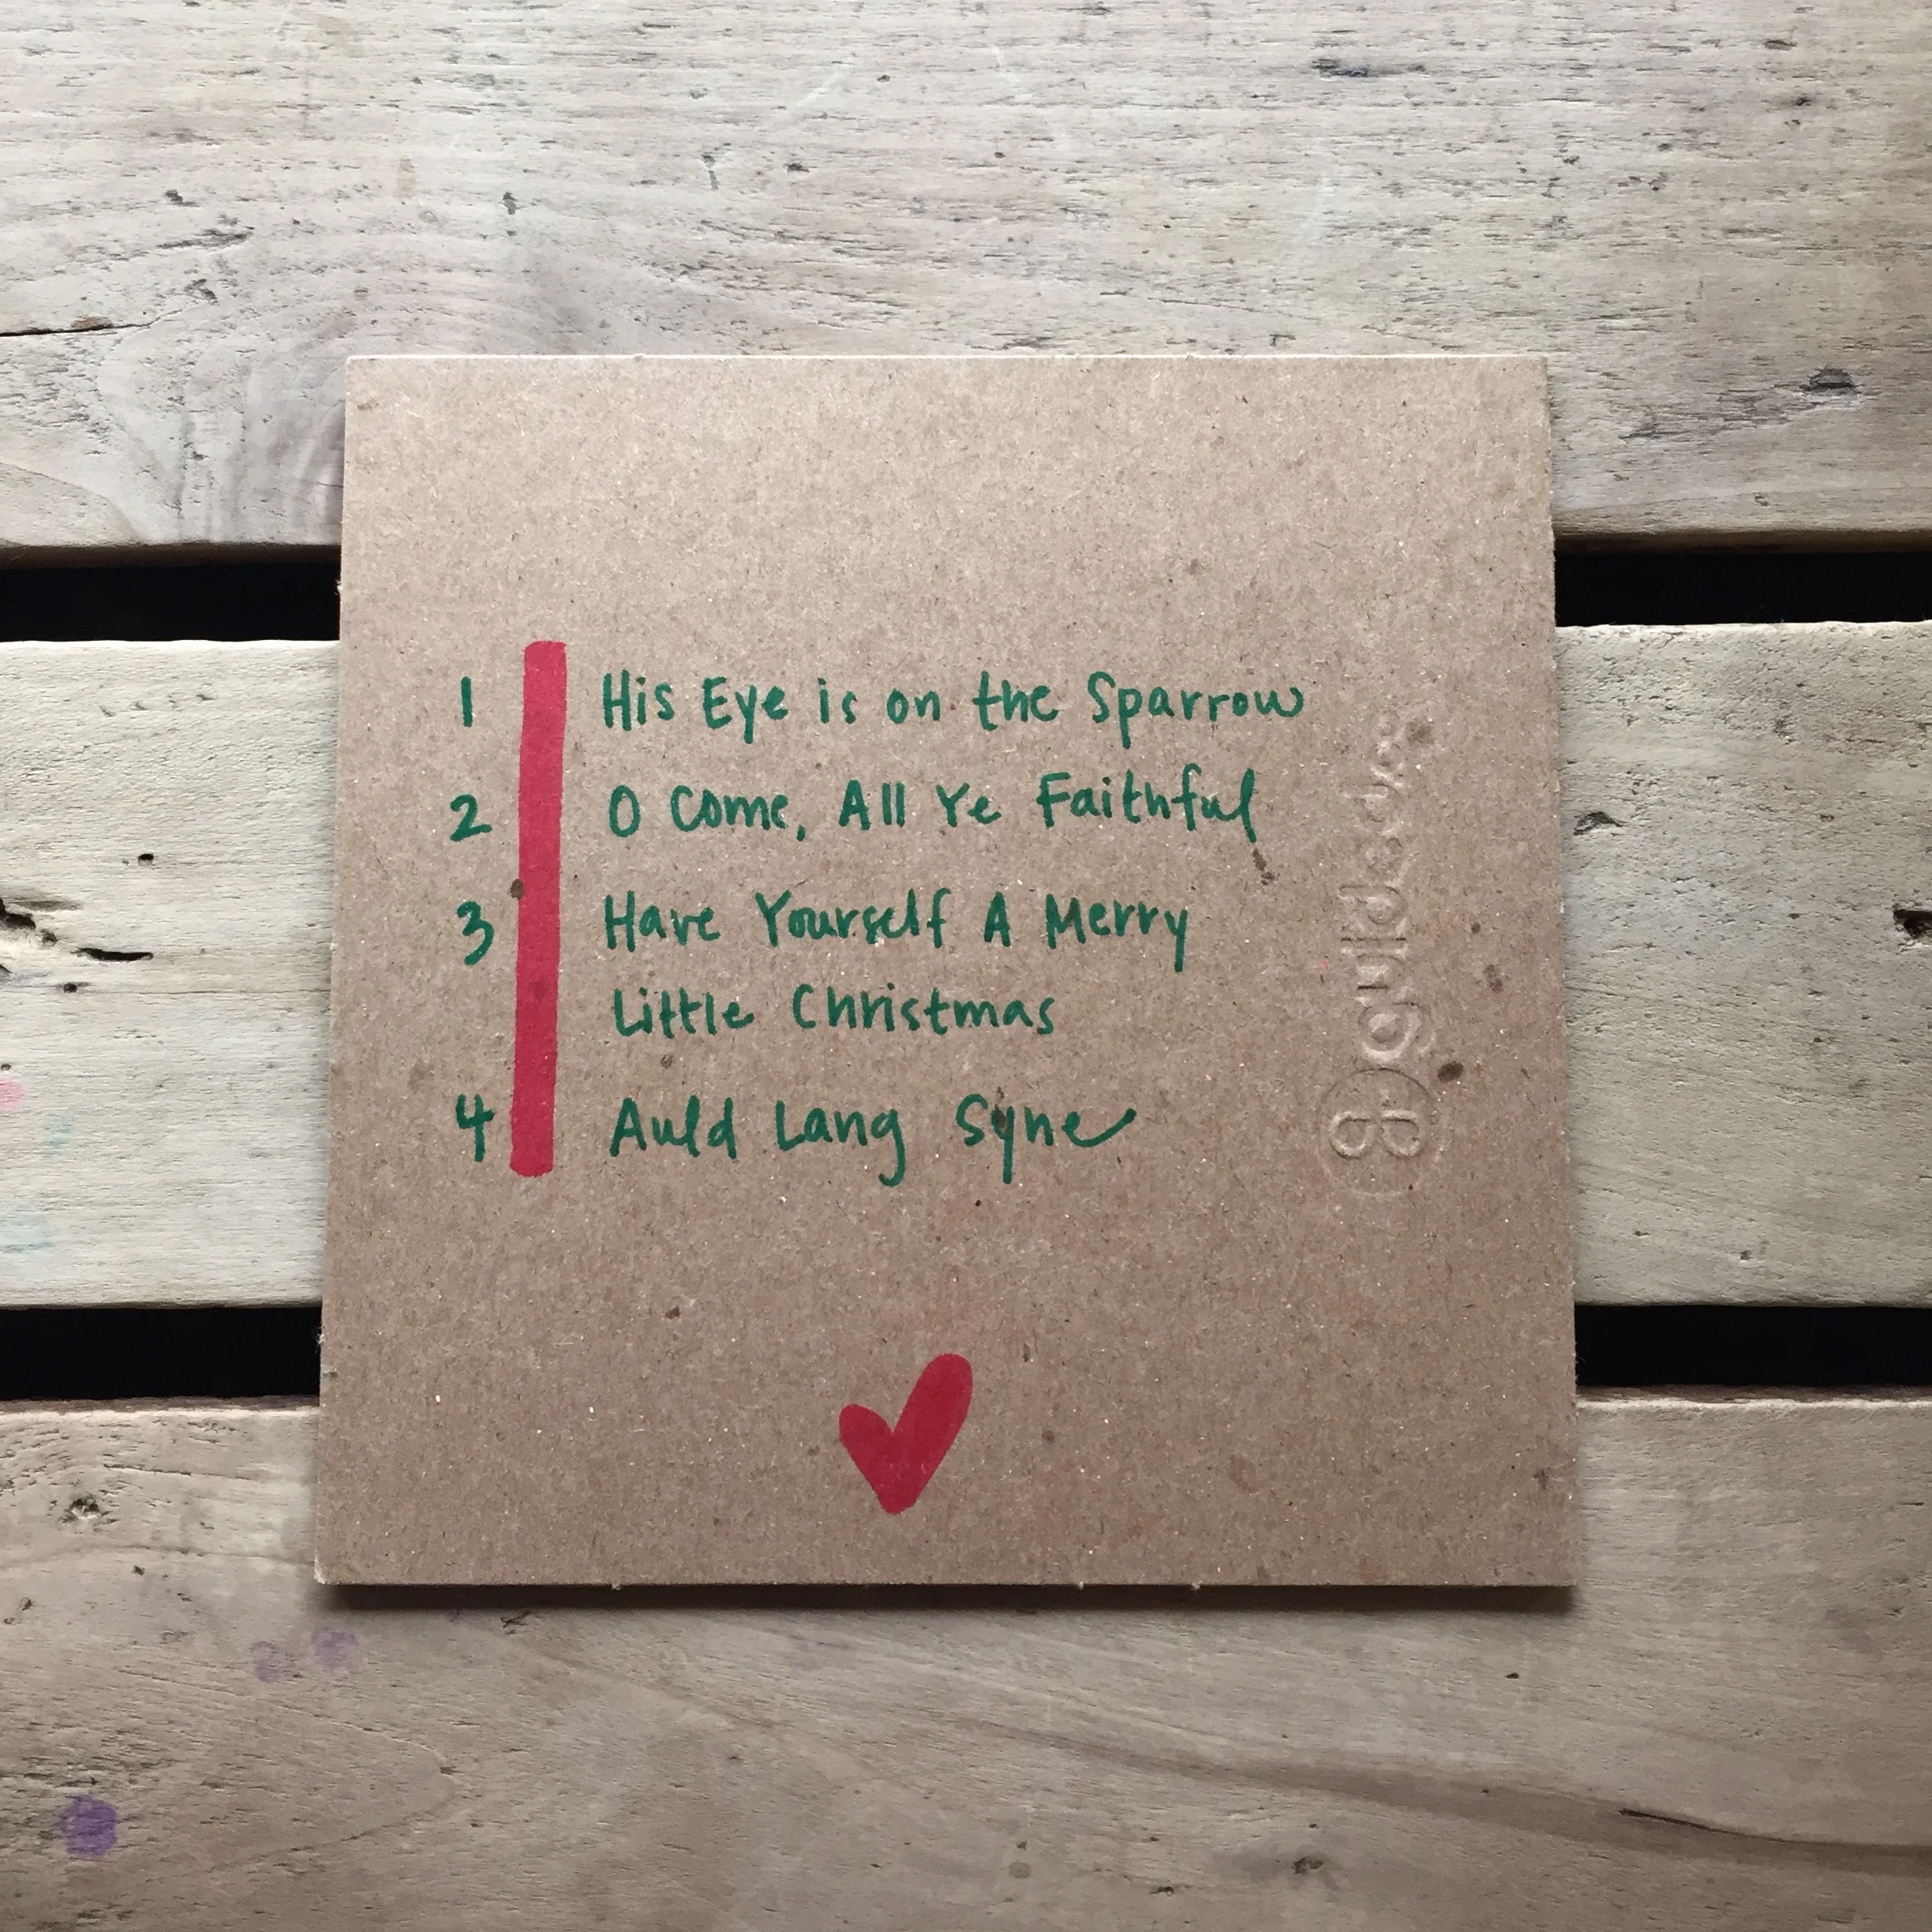 1 His Eye is on the Sparrow
2 O Come, All Ye Faithful
3 Have Yourself A Merry
Little Christmas
4 Auld Lang Syne
guildeadas